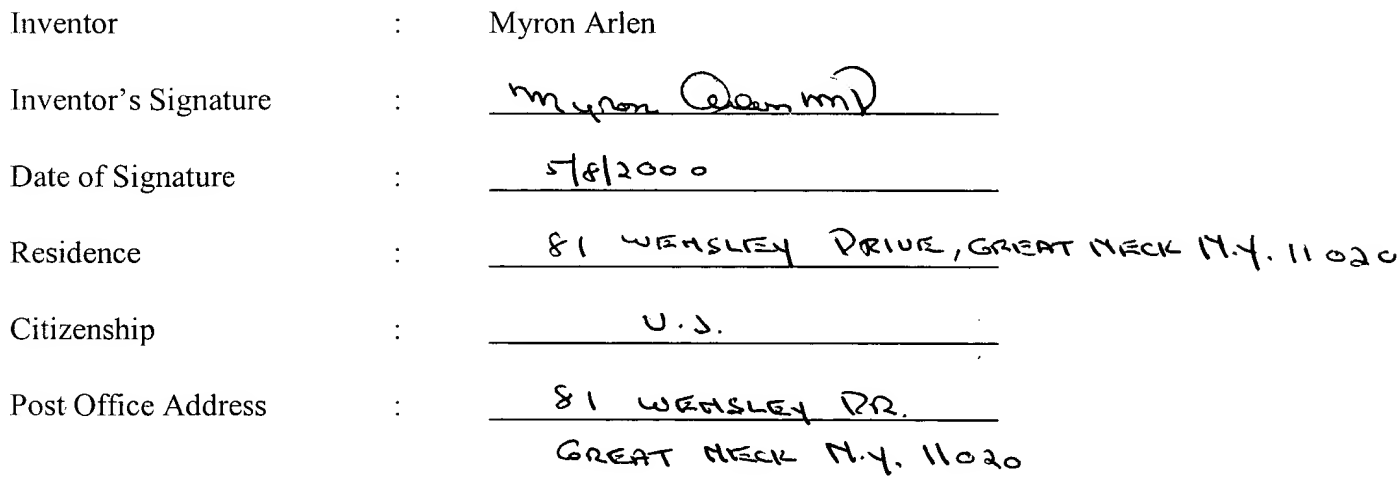 Inventor : Myron Arlen
Inventor's Signature : Myron Arlen MD
Date of Signature : 5/8/2000
Residence : 81 WENSLEY DRIVE, GREAT NECK N.Y. 11020
Citizenship : U.S.
Post Office Address : 81 WENSLEY DR.
GREAT NECK N.Y. 11020